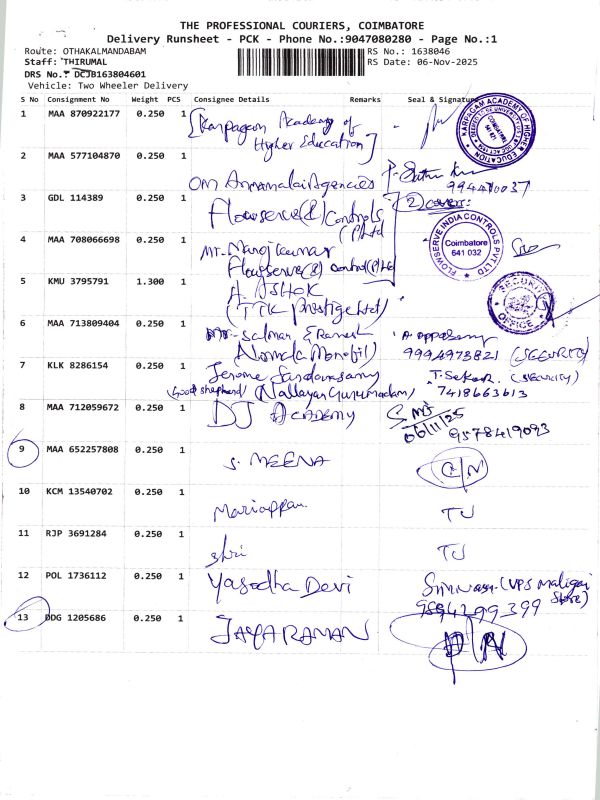 THE PROFESSIONAL COURIERS, COIMBATORE
Delivery Runsheet - PCK - Phone No.:9047080280 - Page No.:1
Route: OTHAKALMANDABAM RS No.: 1638046
Staff: THIRUMAL RS Date: 06-Nov-2025
DRS No.: DCJB163804601
Vehicle: Two Wheeler Delivery
S No Consignment No Weight PCS Consignee Details Remarks Seal & Signature
1 MAA 870922177 0.250 1 [Karpagam Academy of
Higher Education]
KARPAGAM ACADEMY OF HIGHER EDUCATION
COIMBATORE
641 021
2 MAA 577104870 0.250 1
Om Annamalai Agencies
3 GDL 114389 0.250 1 Flowserve (I) Controls (2) covers:
(P) Ltd
4 MAA 708066698 0.250 1 Mr. Manoj Kumar
Flowserve (I) Control (P) Ltd
FLOWSERVE INDIA CONTROLS PVT LTD
Coimbatore
641 032
5 KMU 3795791 1.300 1 A. ASHOK
(TTK Prestige Ltd)
SECURITY OFFICE
6 MAA 713809404 0.250 1 Mr. Salman &
9994973821 (SECURITY)
7 KLK 8286154 0.250 1 Jerome T. Sekar. (security)
(Good Shepherd) 7418663613
8 MAA 712059672 0.250 1 DJ Academy
06/11/25
9578419093
9 MAA 652257808 0.250 1 S. MEENA C/N
10 KCM 13540702 0.250 1 Mariappan TJ
11 RJP 3691284 0.250 1 Shri TJ
12 POL 1736112 0.250 1 Yasodha Devi (VPS Maligai
Store)
9894299399
13 DDG 1205686 0.250 1 JAYARAMAN P/N